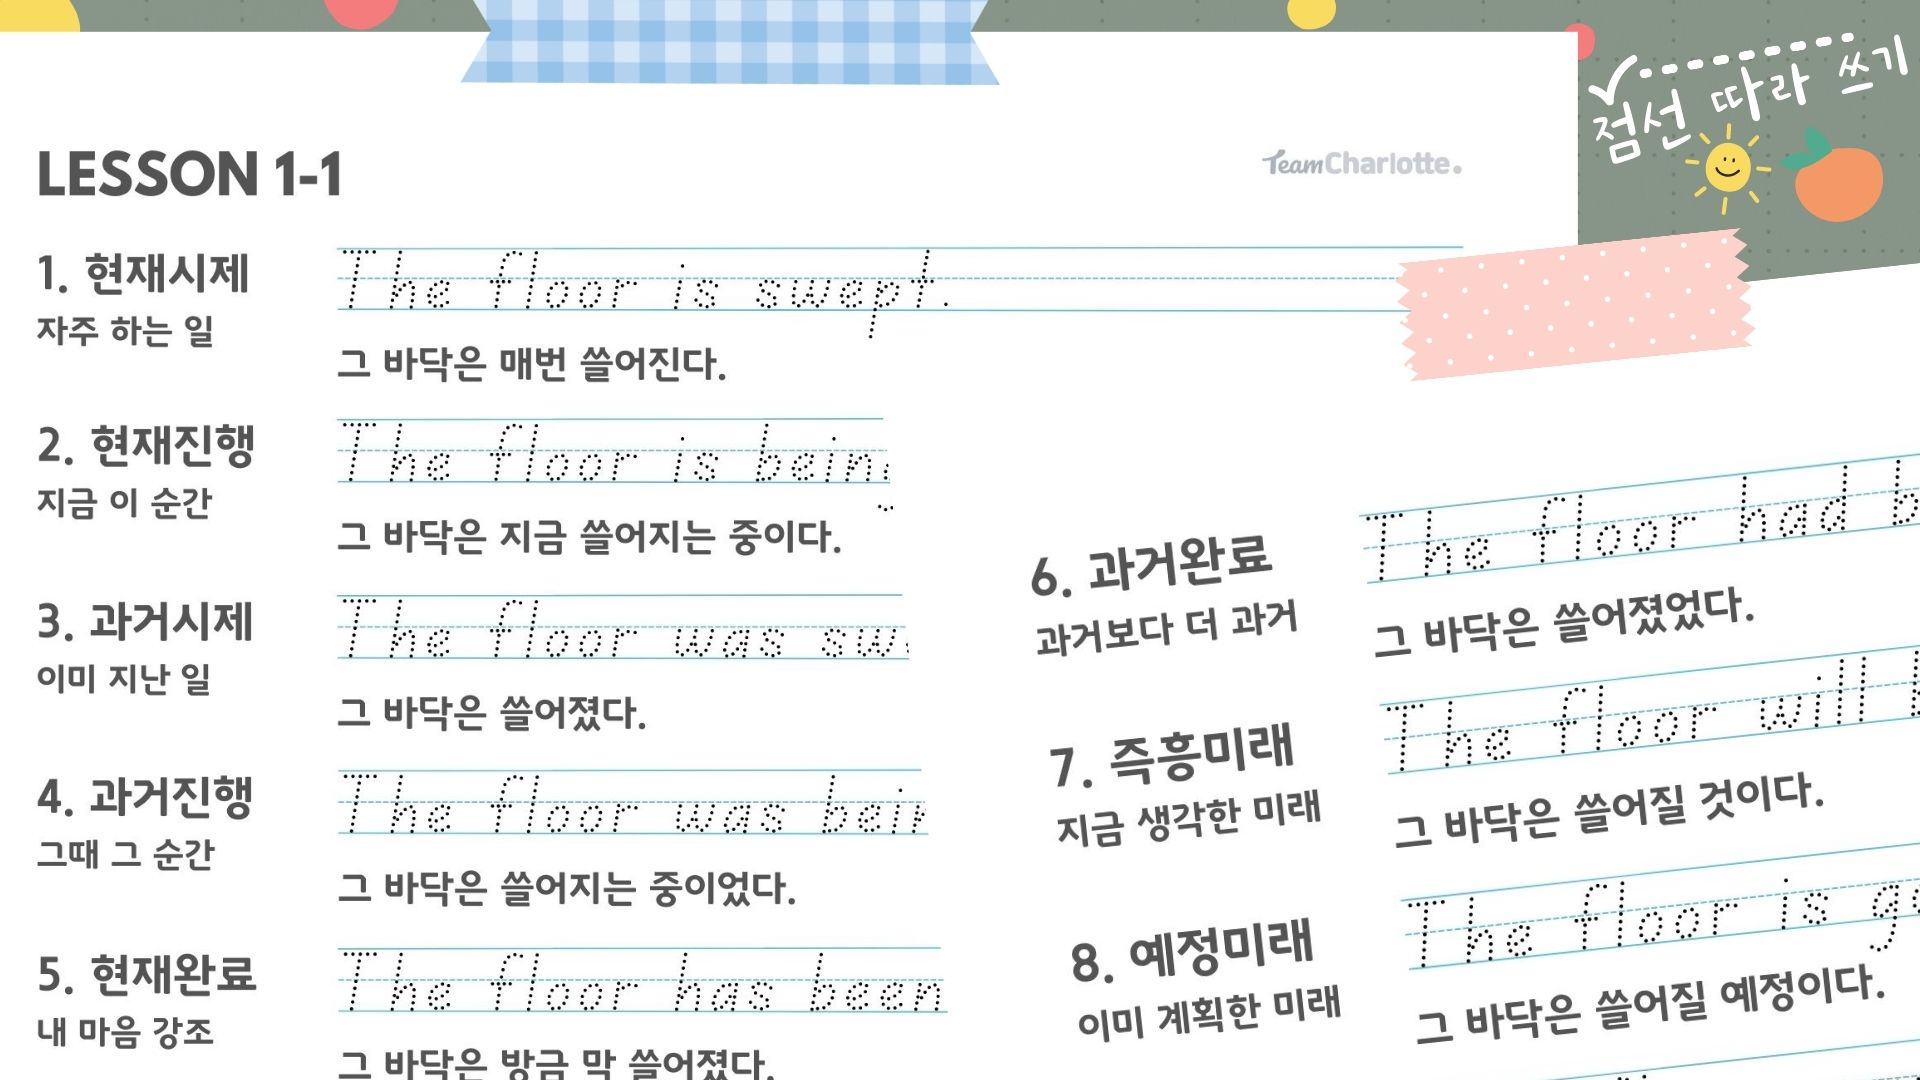 점선 따라 쓰기
LESSON 1-1
TeamCharlotte.
1. 현재시제
자주 하는 일
The floor is swept.
그 바닥은 매번 쓸어진다.
2. 현재진행
지금 이 순간
The floor is bein
그 바닥은 지금 쓸어지는 중이다.
3. 과거시제
이미 지난 일
The floor was sw
그 바닥은 쓸어졌다.
4. 과거진행
그때 그 순간
The floor was bei
그 바닥은 쓸어지는 중이었다.
5. 현재완료
내 마음 강조
The floor has been
그 바닥은 방금 막 쓸어졌다.
6. 과거완료
과거보다 더 과거
The floor had b
그 바닥은 쓸어졌었다.
7. 즉흥미래
지금 생각한 미래
The floor will
그 바닥은 쓸어질 것이다.
8. 예정미래
이미 계획한 미래
The floor is g
그 바닥은 쓸어질 예정이다.